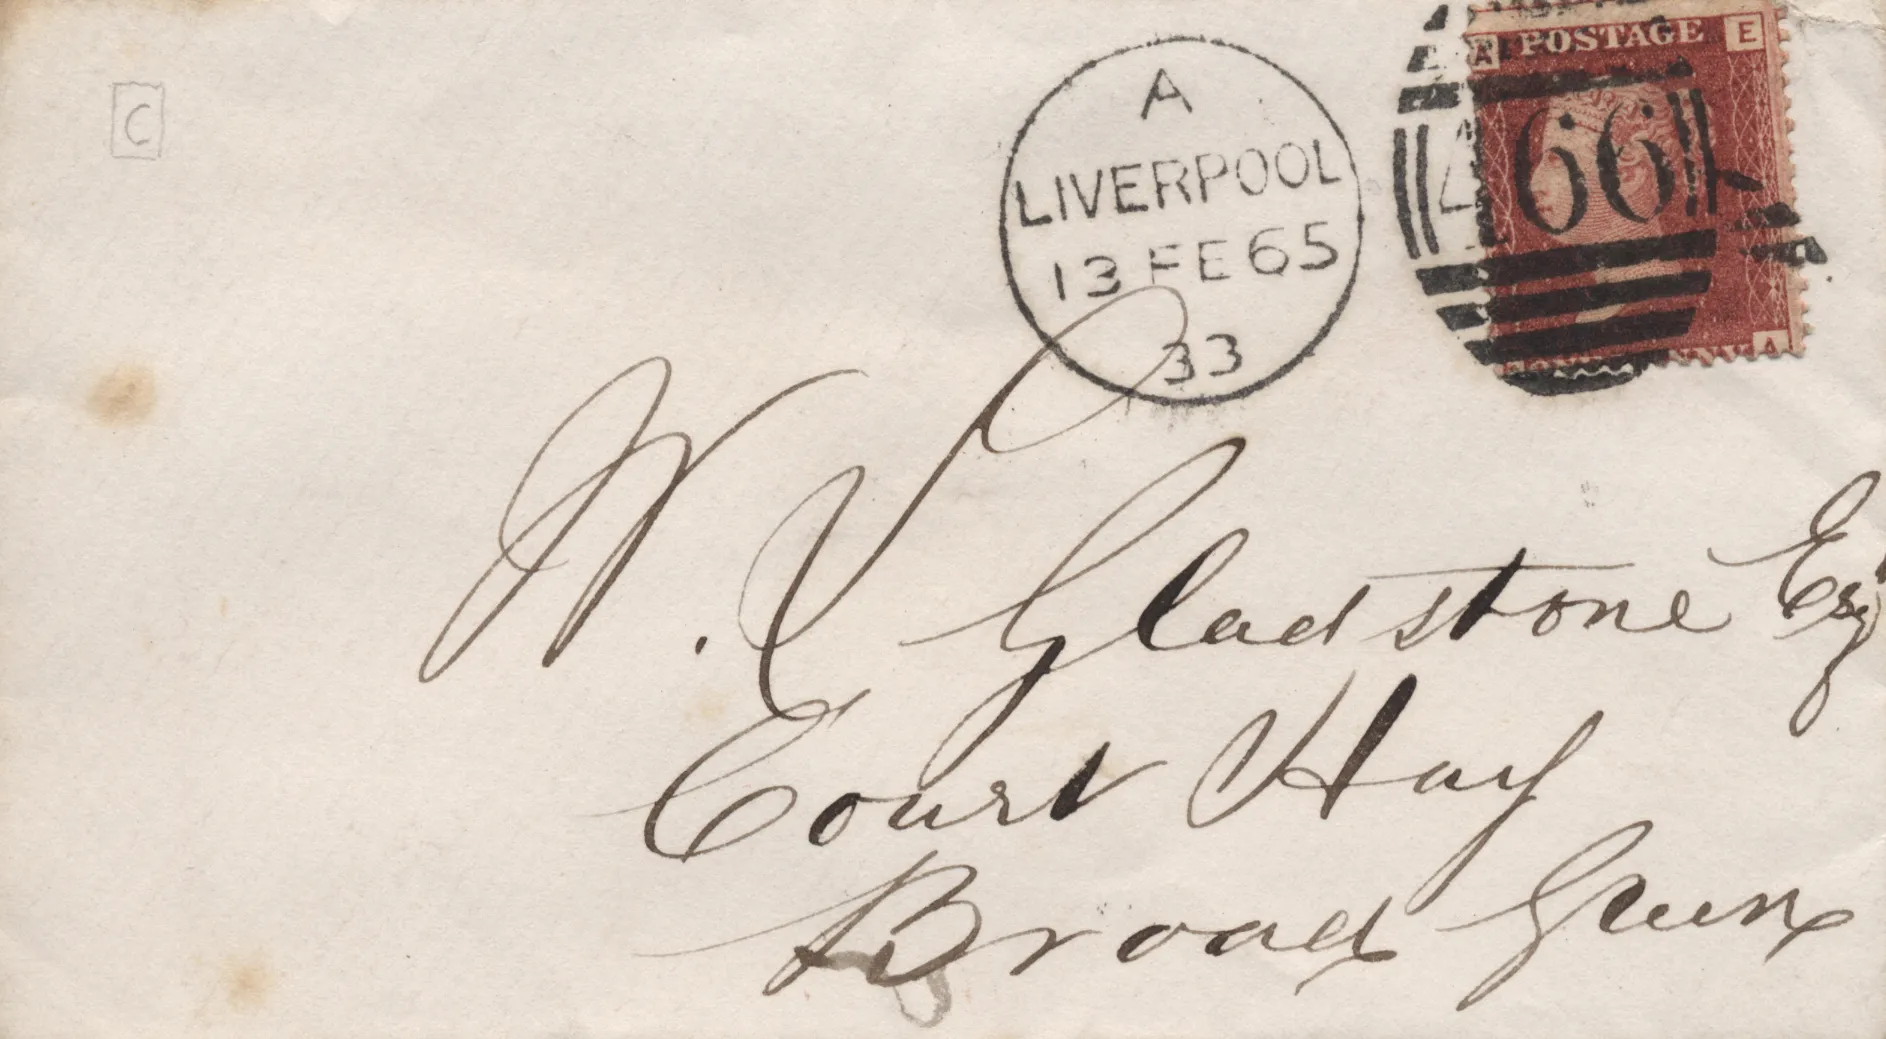 C
A
LIVERPOOL
13 FE 65
33
A POSTAGE E
466
A
W. Gladstone Esq
Court Hay
Broad Green